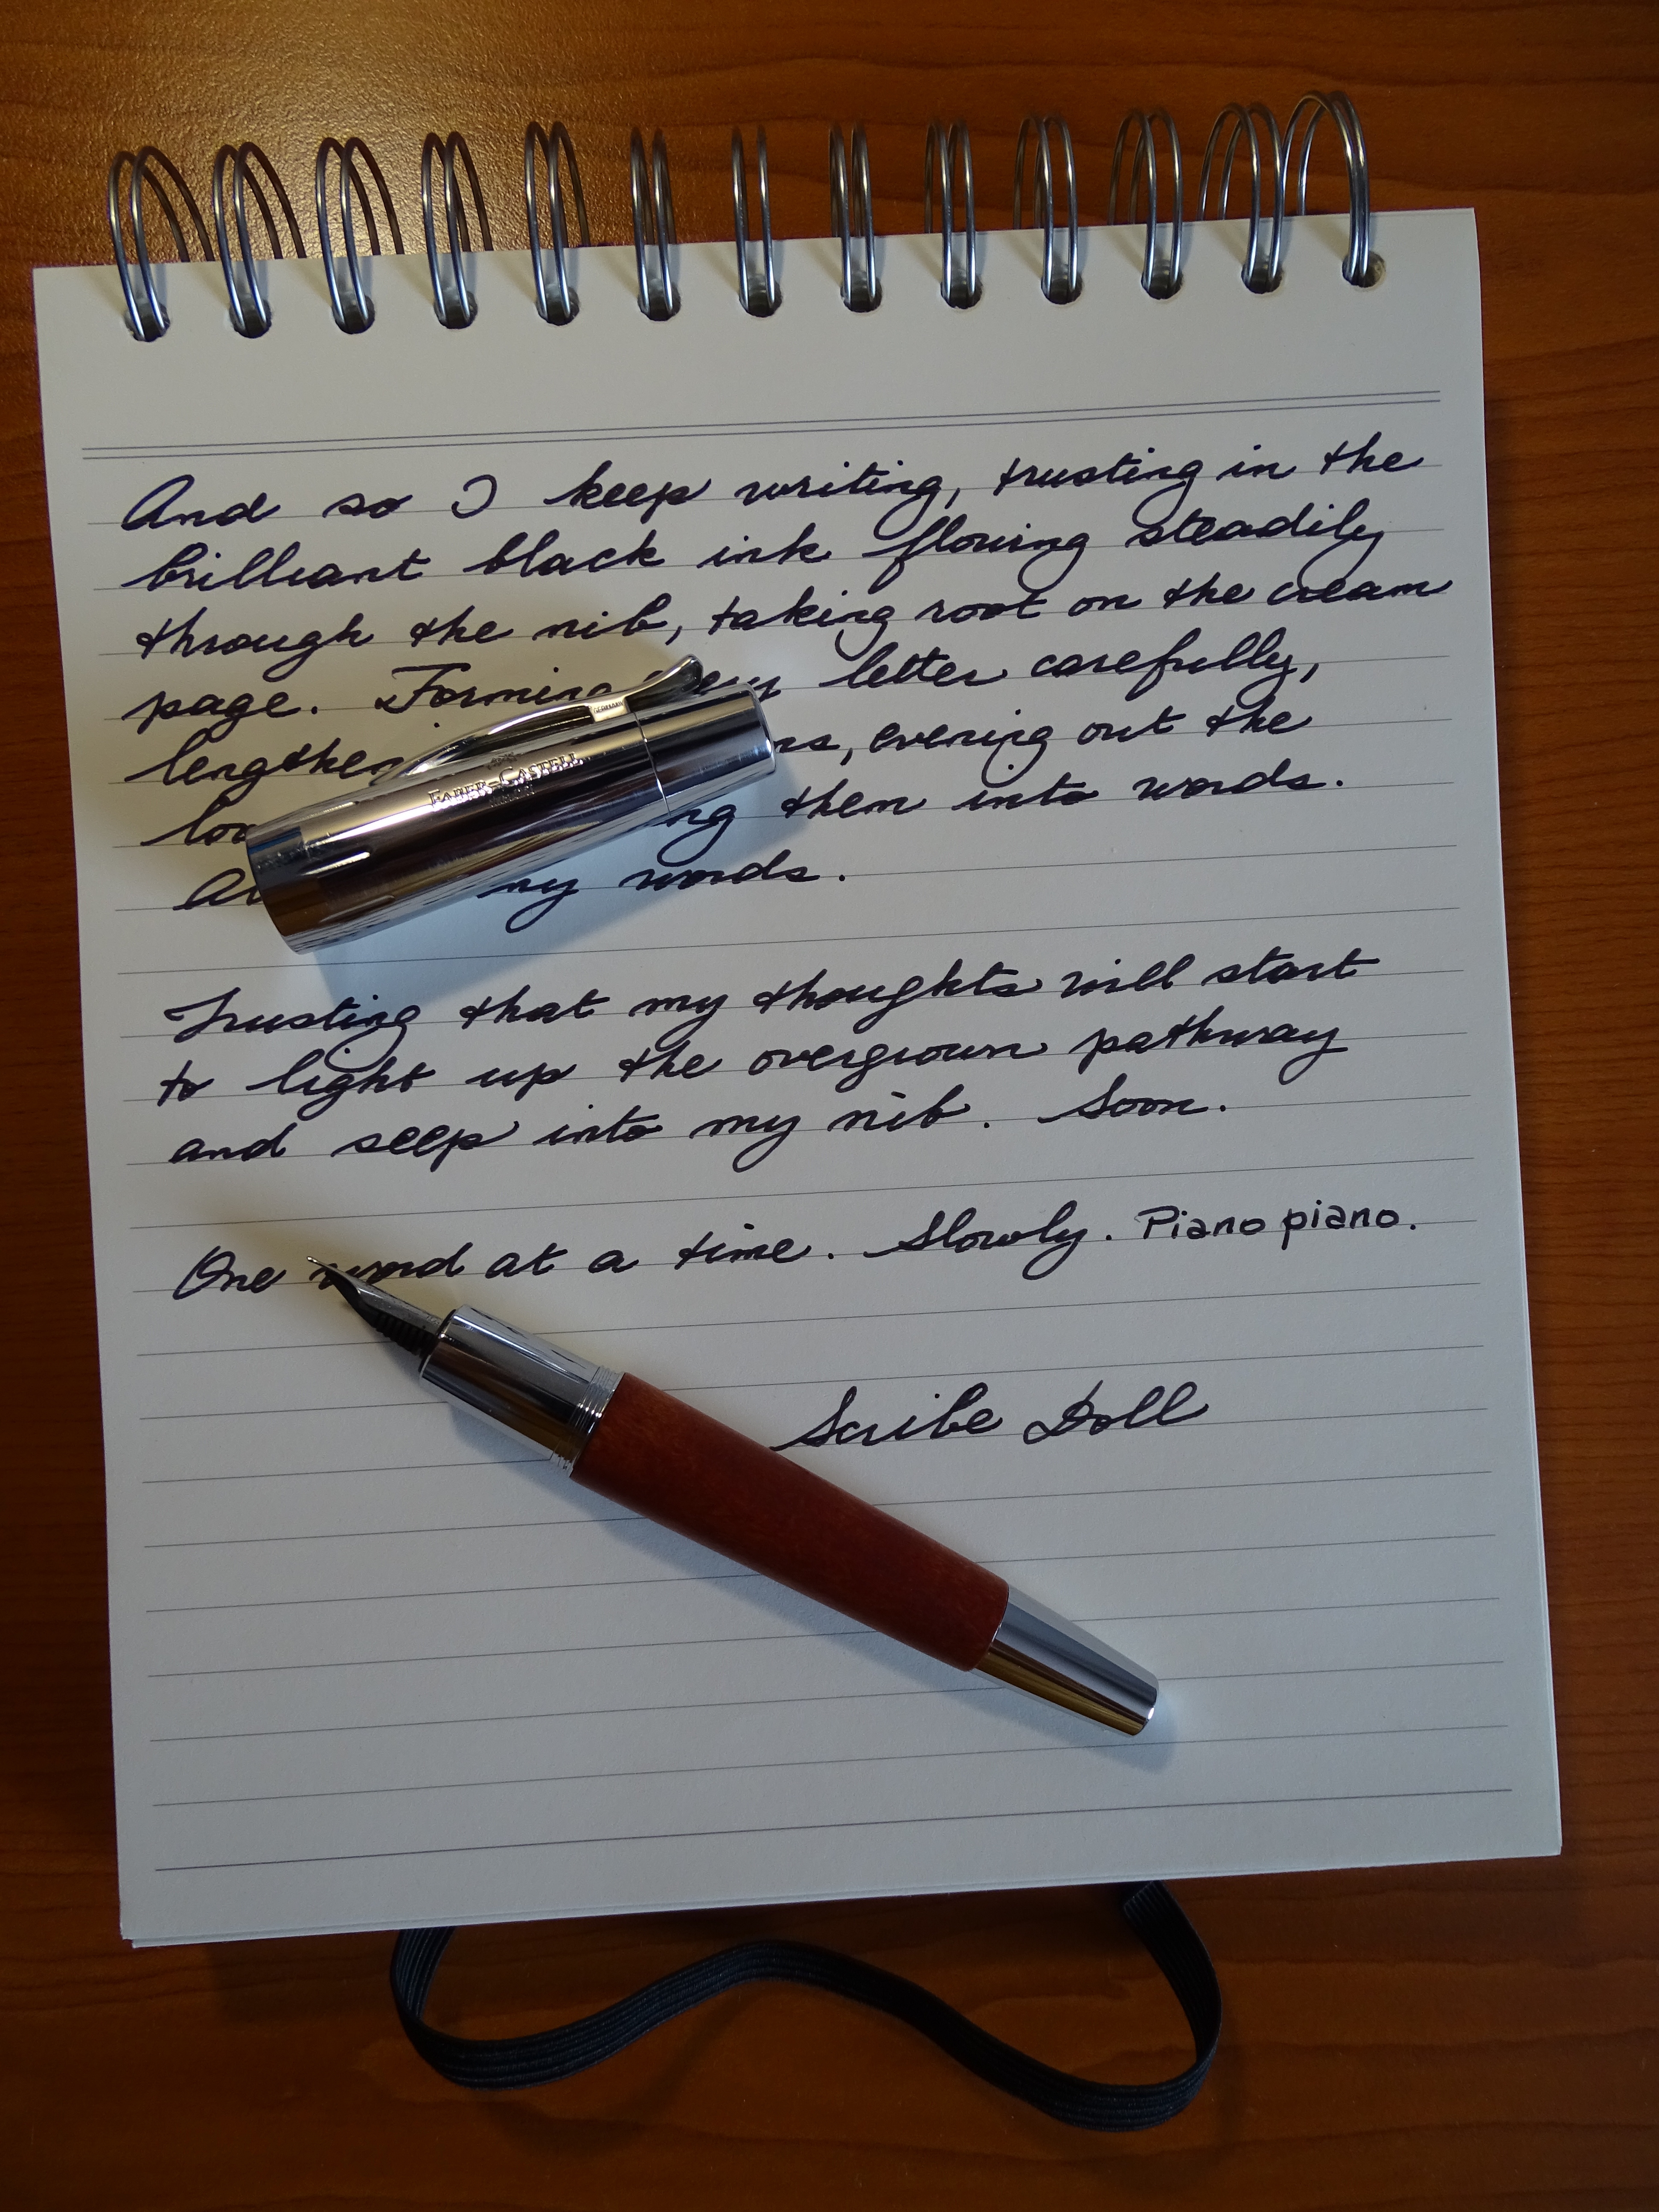 And so I keep writing, trusting in the
brilliant black ink flowing steadily
through the nib, taking root on the cream
page. Forming every letter carefully,
evening out the
them into words.
my words.
Trusting that my thoughts will start
to light up the overgrown pathway
and seep into my nib. Soon.
One word at a time. Slowly. Piano piano.
Scribe Doll
FABER-CASTELL
GERMANY